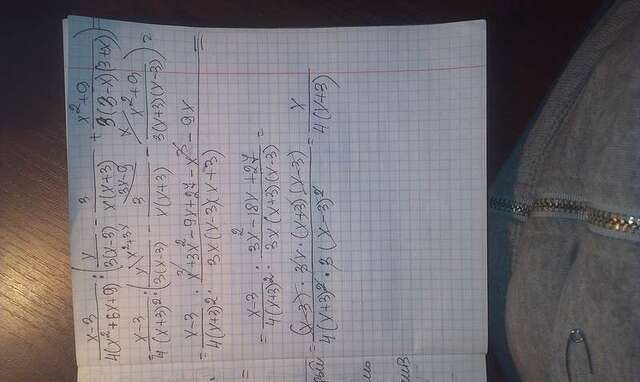 x-3 / 4(x²+6x+9) : ( x / 3(x-3) - 3 / x(x+3) + x²+9 / 3(3-x)(3+x) ) =
x²+3x 3x-9 x
x-3 / 4(x+3)² : ( x / 3(x-3) - 3 / x(x+3) - x²+9 / 3(x+3)(x-3) ) =
= x-3 / 4(x+3)² : x³+3x²-9x+27-x³-9x / 3x(x-3)(x+3) =
= x-3 / 4(x+3)² : 3x²-18x+27 / 3x(x+3)(x-3) =
= (x-3) · 3x·(x+3)(x-3) / 4(x+3)² · 3(x-3)² = x / 4(x+3)